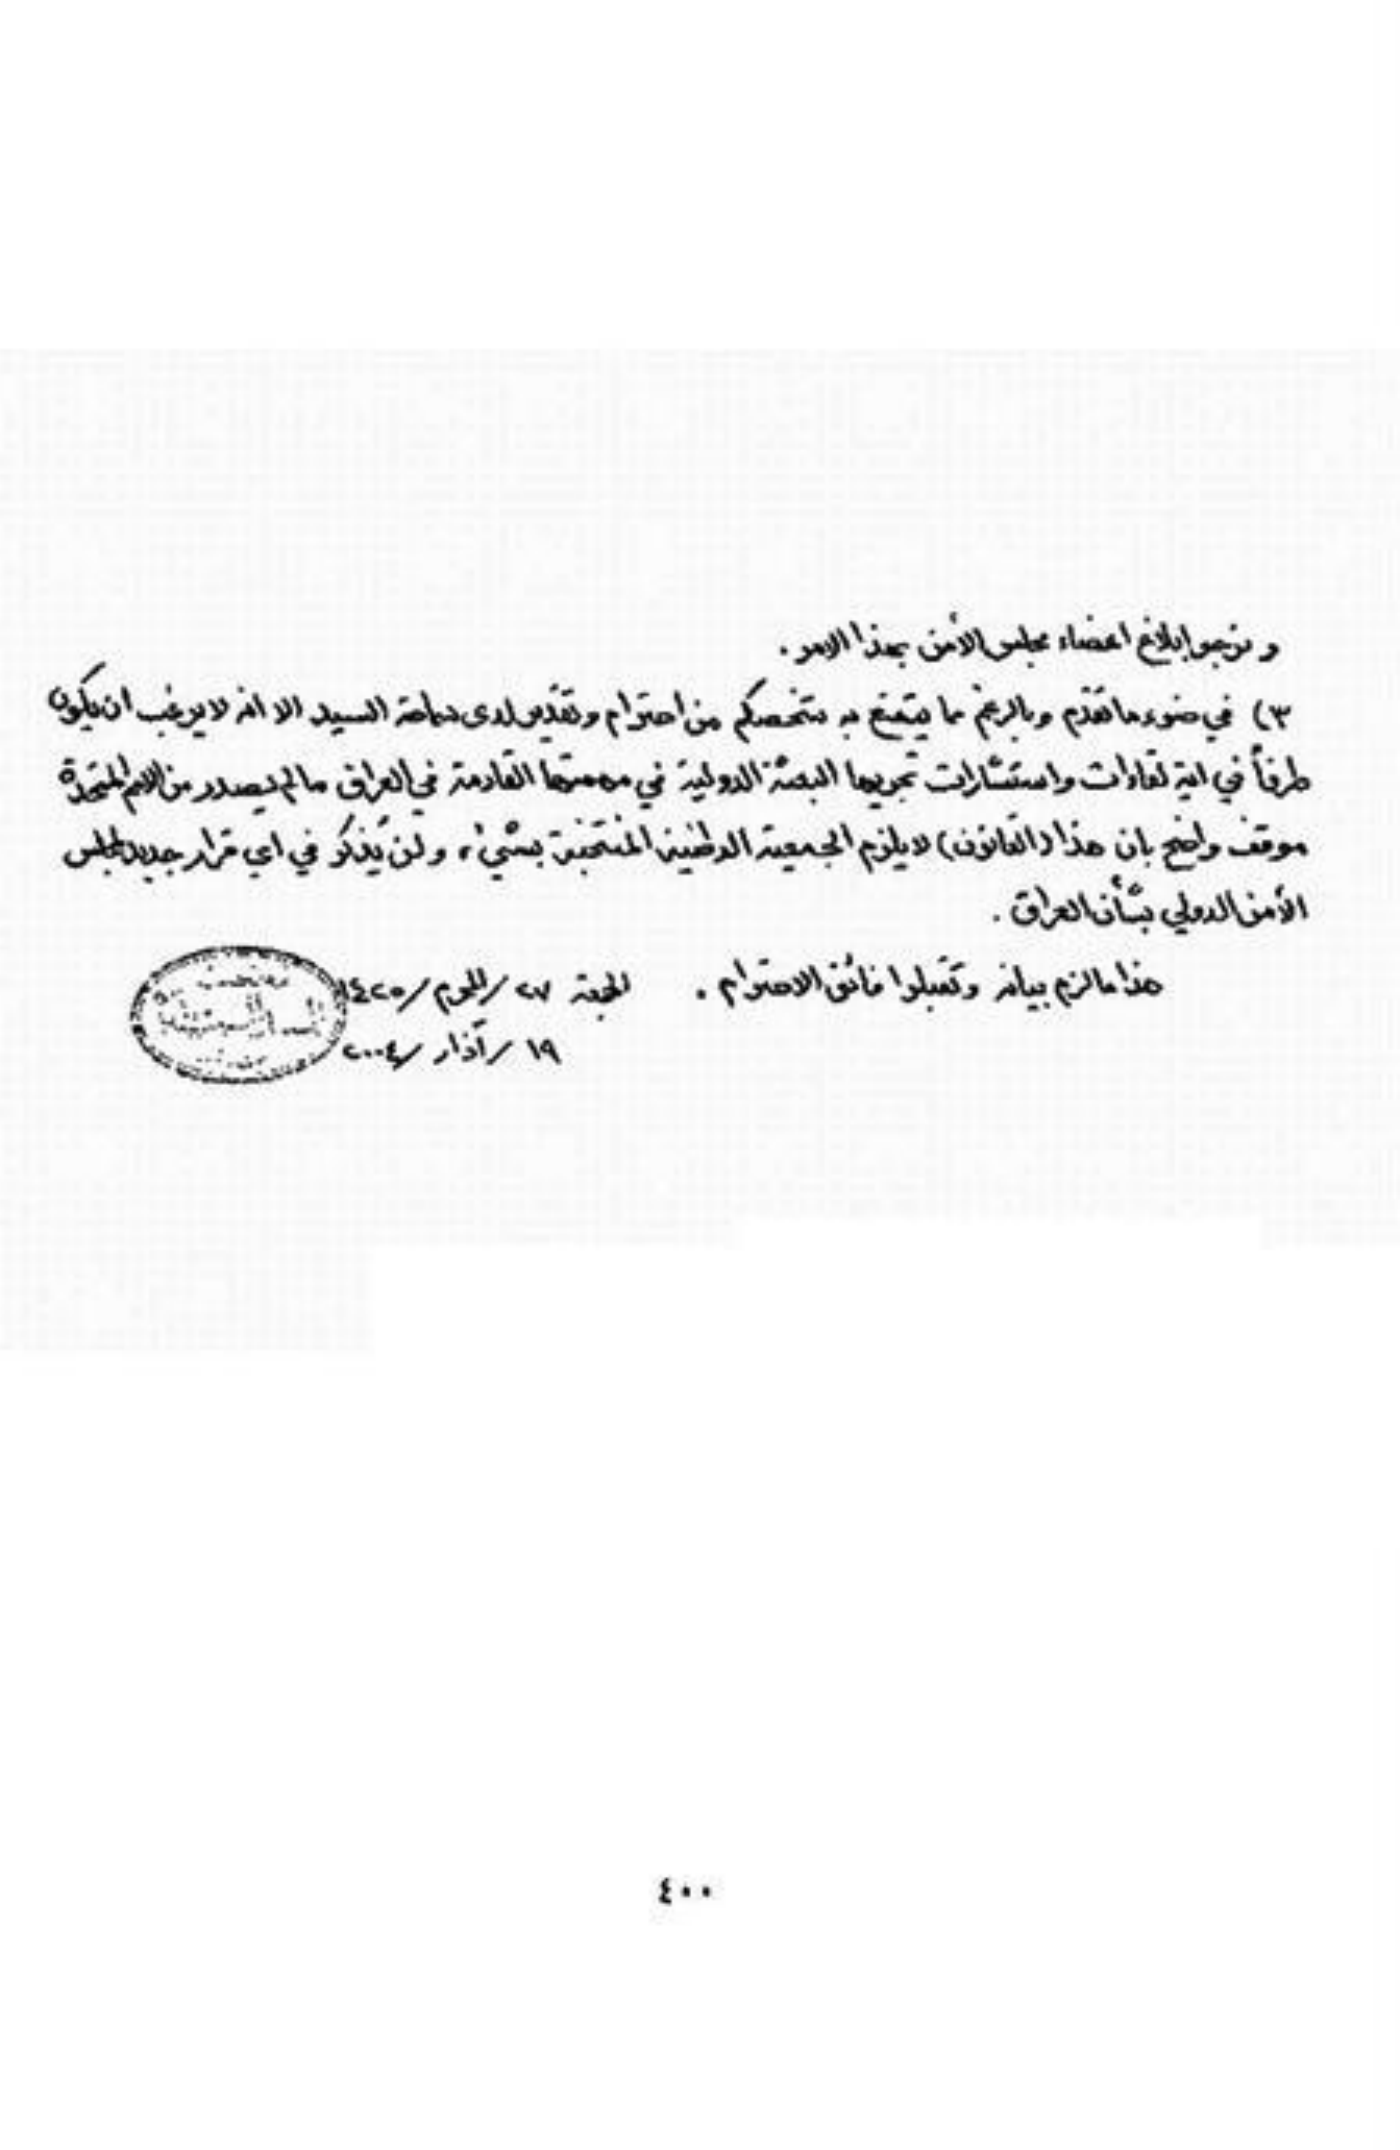 و نرجو إبلاغ اعضاء مجلس الأمن بهذا الامر .
٣) في ضوء ما تقدم وبالرغم مما يتمتع به شخصكم من احترام وتقدير لدى سماحة السيد الا انه لا يرغب ان يكون
طرفاً في اية لقاءات واستشارات تجريها البعثة الدولية في مهمتها القادمة في العراق ما لم يصدر من الامم المتحدة
موقف واضح بان هذا (القانون) لا يلزم الجمعية الوطنية المنتخبة بشيء ، ولن يُذكر في اي قرار جديد لمجلس
الأمن الدولي بشأن العراق .
هذا ما لزم بيانه وتقبلوا فائق الاحترام . الجمعة ٢٧ /المحرم/ ١٤٢٥
١٩ /آذار /٢٠٠٤
السيد السيستاني
٤٠٠